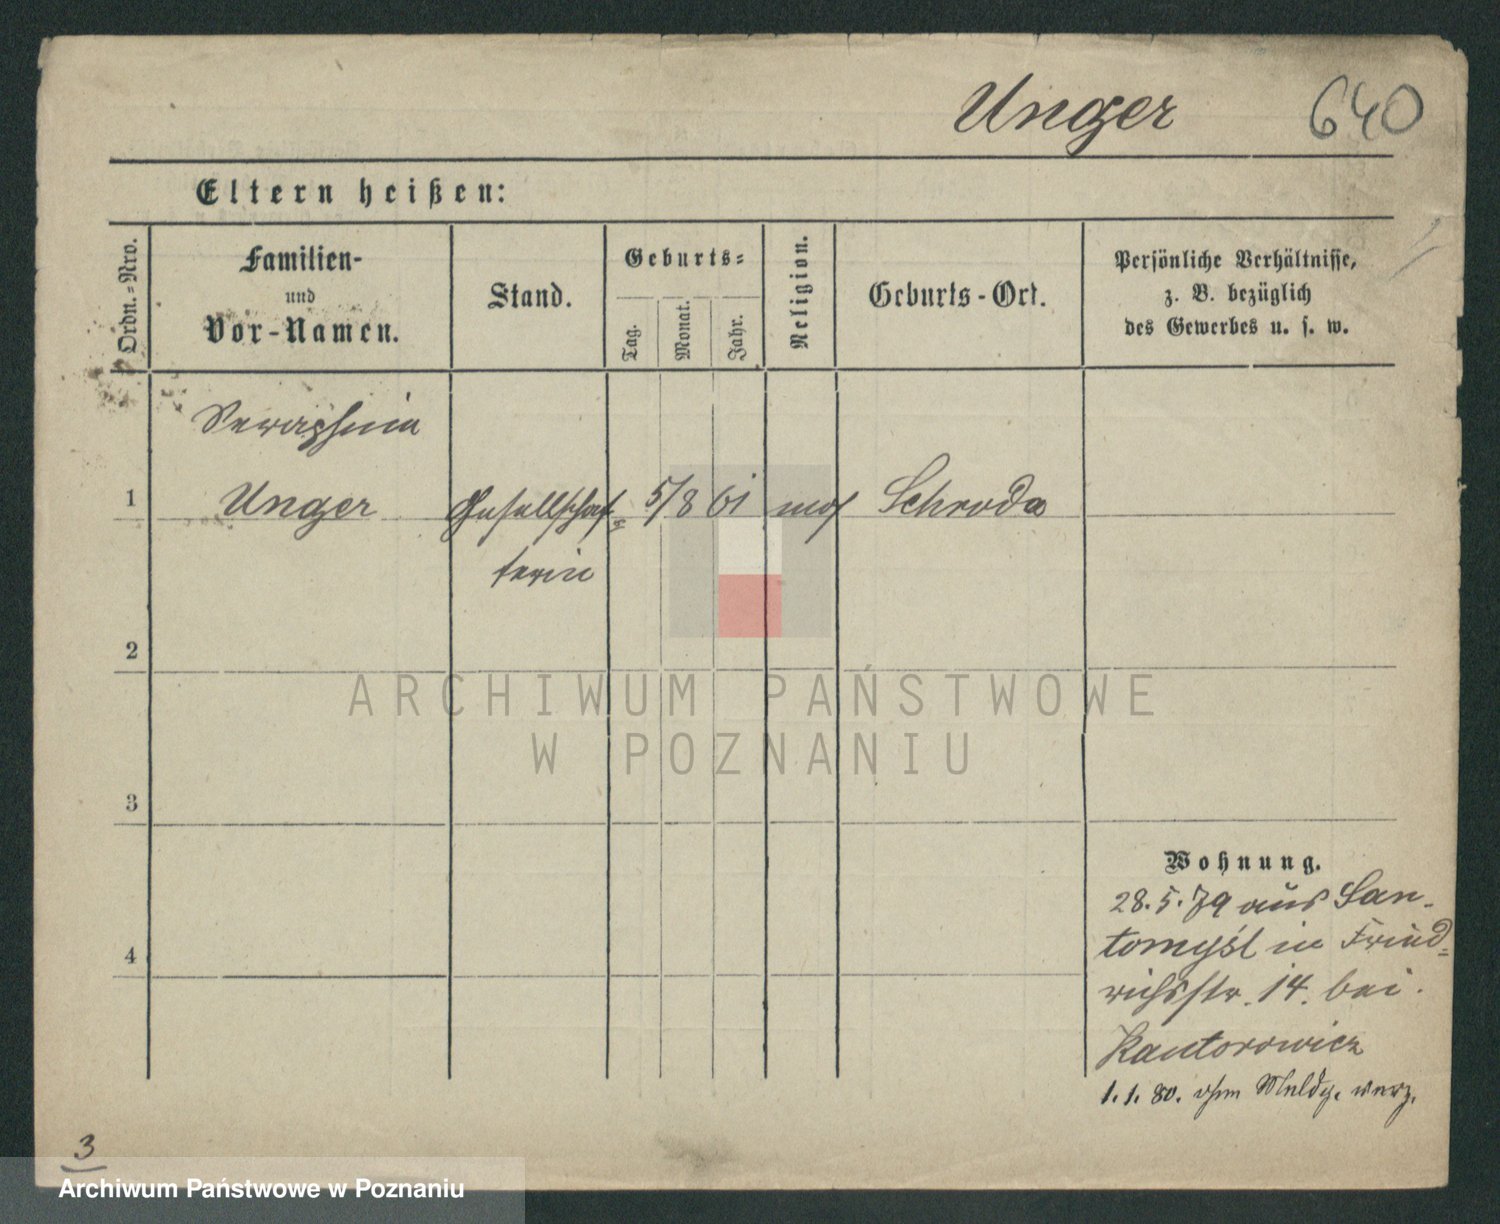 Unger 640
Eltern heißen:
Ordn.-Nro.
Familien-
und
Vor-Namen.
Stand.
Geburts-
Tag.
Monat.
Jahr.
Religion.
Geburts-Ort.
Persönliche Verhältnisse,
z. B. bezüglich
des Gewerbes u. s. w.
Seraphina
1 Unger Gesellschaf- 5/8 61 mos Schroda
terin
2
ARCHIWUM PAŃSTWOWE
W POZNANIU
3
Wohnung.
28.5.79 aus San-
tomyśl in Fried-
4
richsstr. 14. bei
Kantorowicz
1.1.80. ohne Meldg. verz.
3
Archiwum Państwowe w Poznaniu